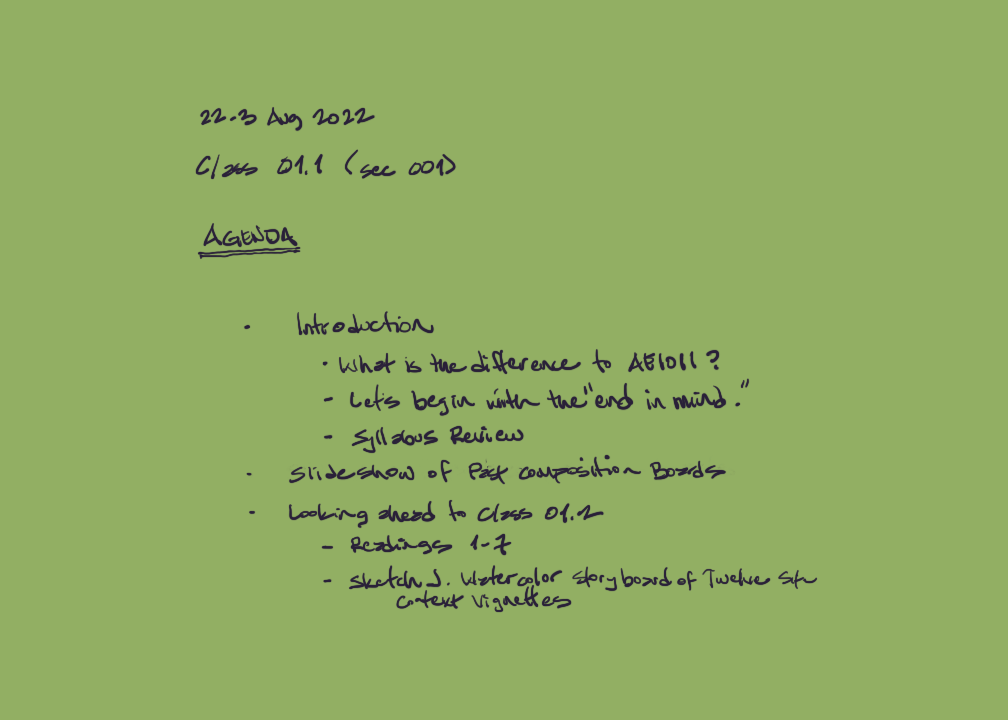 22.3 Aug 2022
Class 01.1 (sec 001)
AGENDA
· Introduction
· What is the difference to AE1011?
- Let's begin with the "end in mind."
- Syllabus Review
· Slideshow of Past Composition Boards
· Looking ahead to Class 01.2
- Readings 1-7
- Sketch J. Watercolor Storyboard of Twelve Site
Context Vignettes